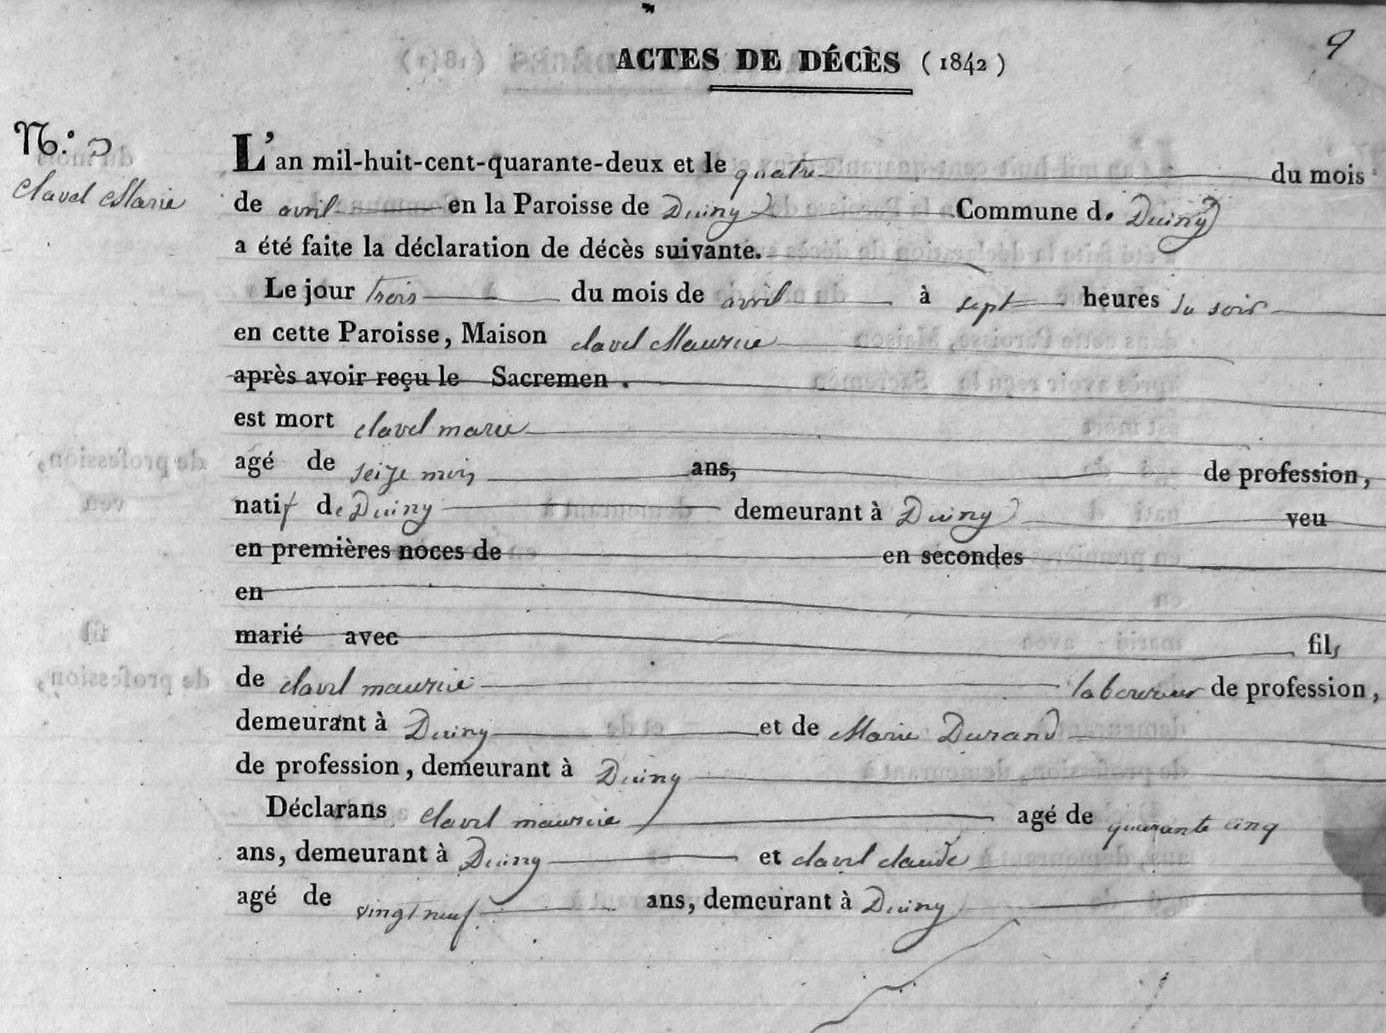 ACTES DE DÉCÈS (1842)
9
N.º
Clavel Marie
L'an mil-huit-cent-quarante-deux et le quatre du mois
de avril en la Paroisse de Duing Commune d. Duing
a été faite la déclaration de décès suivante.
Le jour trois du mois de avril à sept heures du soir
en cette Paroisse, Maison clavel Maurice
après avoir reçu le Sacremen .
est mort clavel marie
agé de seize mois ans, de profession,
natif de Duing demeurant à Duing veu
en premières noces de en secondes
en
marié avec fils
de clavel maurice laboureur de profession,
demeurant à Duing et de Marie Durand
de profession, demeurant à Duing
Déclarans clavel maurice agé de quarante cinq
ans, demeurant à Duing et clavel claude
agé de vingt neuf ans, demeurant à Duing